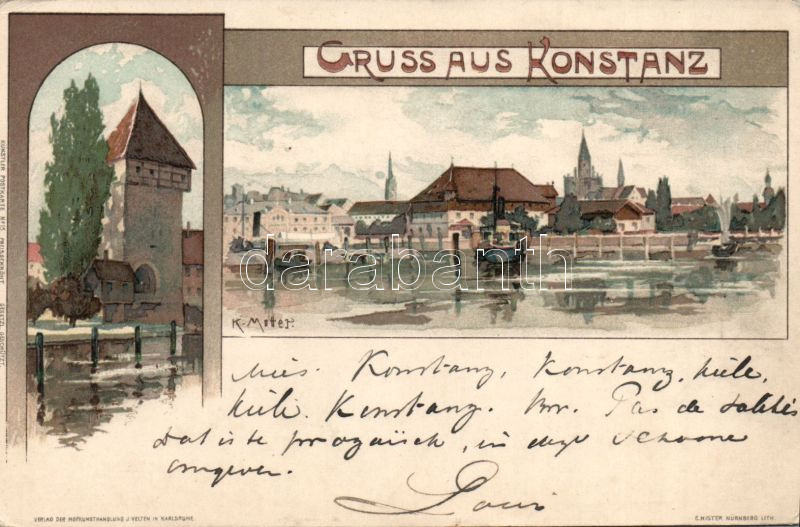 GRUSS AUS KONSTANZ
KÜNSTLER POSTKARTE No 15 PREISGEKRÖNT GESETZL. GESCHÜTZT.
darabanth
K. Mutter.
Konstanz, Konstanz, hiele,
hiele. Konstanz. Brr. Pas de
Dat is te prozaïsch, in deze schoone
omgeven.
Louis
VERLAG DER HOFKUNSTHANDLUNG J. VELTEN IN KARLSRUHE.
E. NISTER NÜRNBERG LITH.